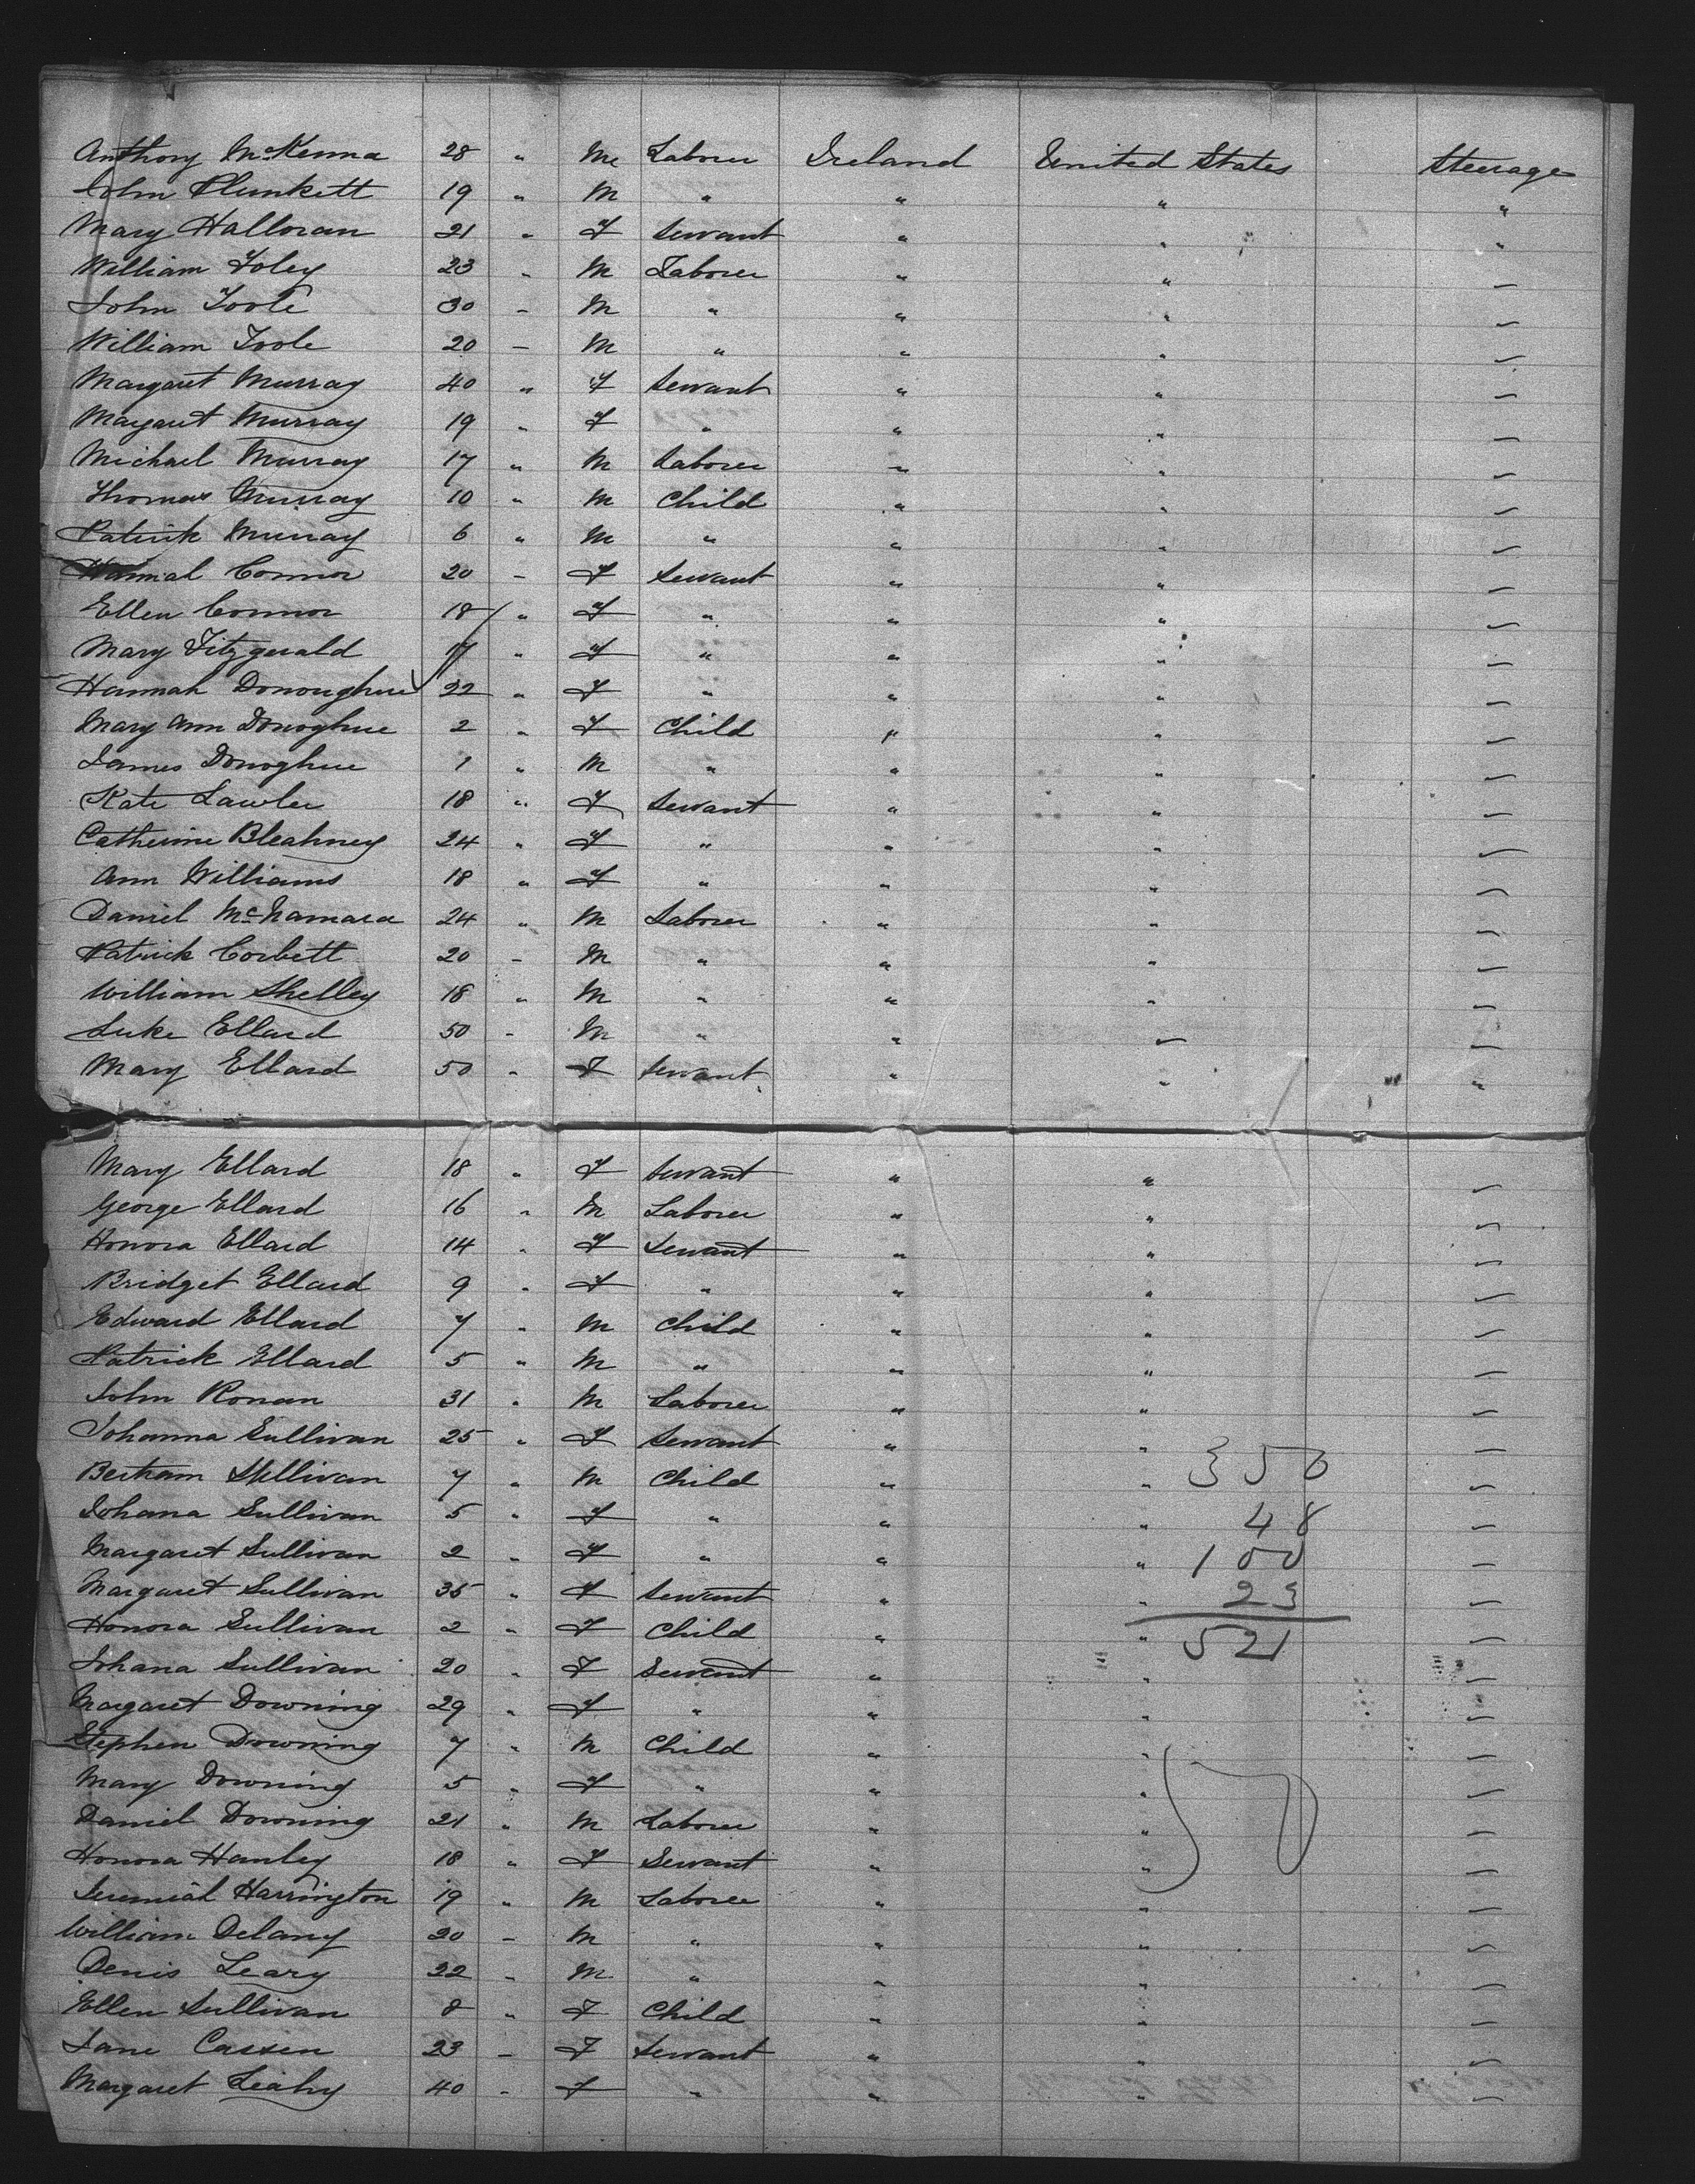 Anthony McKenna 28 " M Laborer Ireland United States Steerage
John Plunkett 19 " M " " " "
Mary Halloran 21 " F Servant " " "
William Foley 23 " M Laborer " " "
John Toole 30 " M " " " "
William Toole 20 " M " " " "
Margaret Murray 40 " F Servant " " "
Margaret Murray 19 " F " " " "
Michael Murray 17 " M Laborer " " "
Thomas Murray 10 " M Child " " "
Patrick Murray 6 " M " " " "
Hannah Connor 20 " F Servant " " "
Ellen Connor 18 " F " " " "
Mary Fitzgerald 17 " F " " " "
Hannah Donoughue 22 " F " " " "
Mary Ann Donoghue 2 " F Child " " "
James Donoghue 1 " M " " " "
Kate Lawler 18 " F Servant " " "
Catherine Bleahney 24 " F " " " "
Ann Williams 18 " F " " " "
Daniel McNamara 24 " M Laborer " " "
Patrick Corbett 20 " M " " " "
William Shelley 18 " M " " " "
Luke Ellard 50 " M " " " "
Mary Ellard 50 " F Servant " " "
Mary Ellard 18 " F Servant " " "
George Ellard 16 " M Laborer " " "
Honora Ellard 14 " F Servant " " "
Bridget Ellard 9 " F " " " "
Edward Ellard 7 " M Child " " "
Patrick Ellard 5 " M " " " "
John Ronan 31 " M Laborer " " "
Johanna Sullivan 25 " F Servant " " "
Bertram Sullivan 7 " M Child " " 350 "
Johana Sullivan 5 " F " " " 48 "
Margaret Sullivan 2 " F " " " 100 "
Margaret Sullivan 35 " F Servant " " 23 "
Honora Sullivan 2 " F Child " " 521 "
Johana Sullivan 20 " F Servant " " "
Margaret Downing 29 " F " " " "
Stephen Downing 7 " M Child " " "
Mary Downing 5 " F " " " "
Daniel Downing 21 " M Laborer " " "
Honora Hanley 18 " F Servant " " "
Jeremiah Harrington 19 " M Laborer " " "
William Delany 20 " M " " " "
Denis Leary 22 " M " " " "
Ellen Sullivan 8 " F Child " " "
Jane Cassen 23 " F Servant " " "
Margaret Leahy 40 " F " " " "